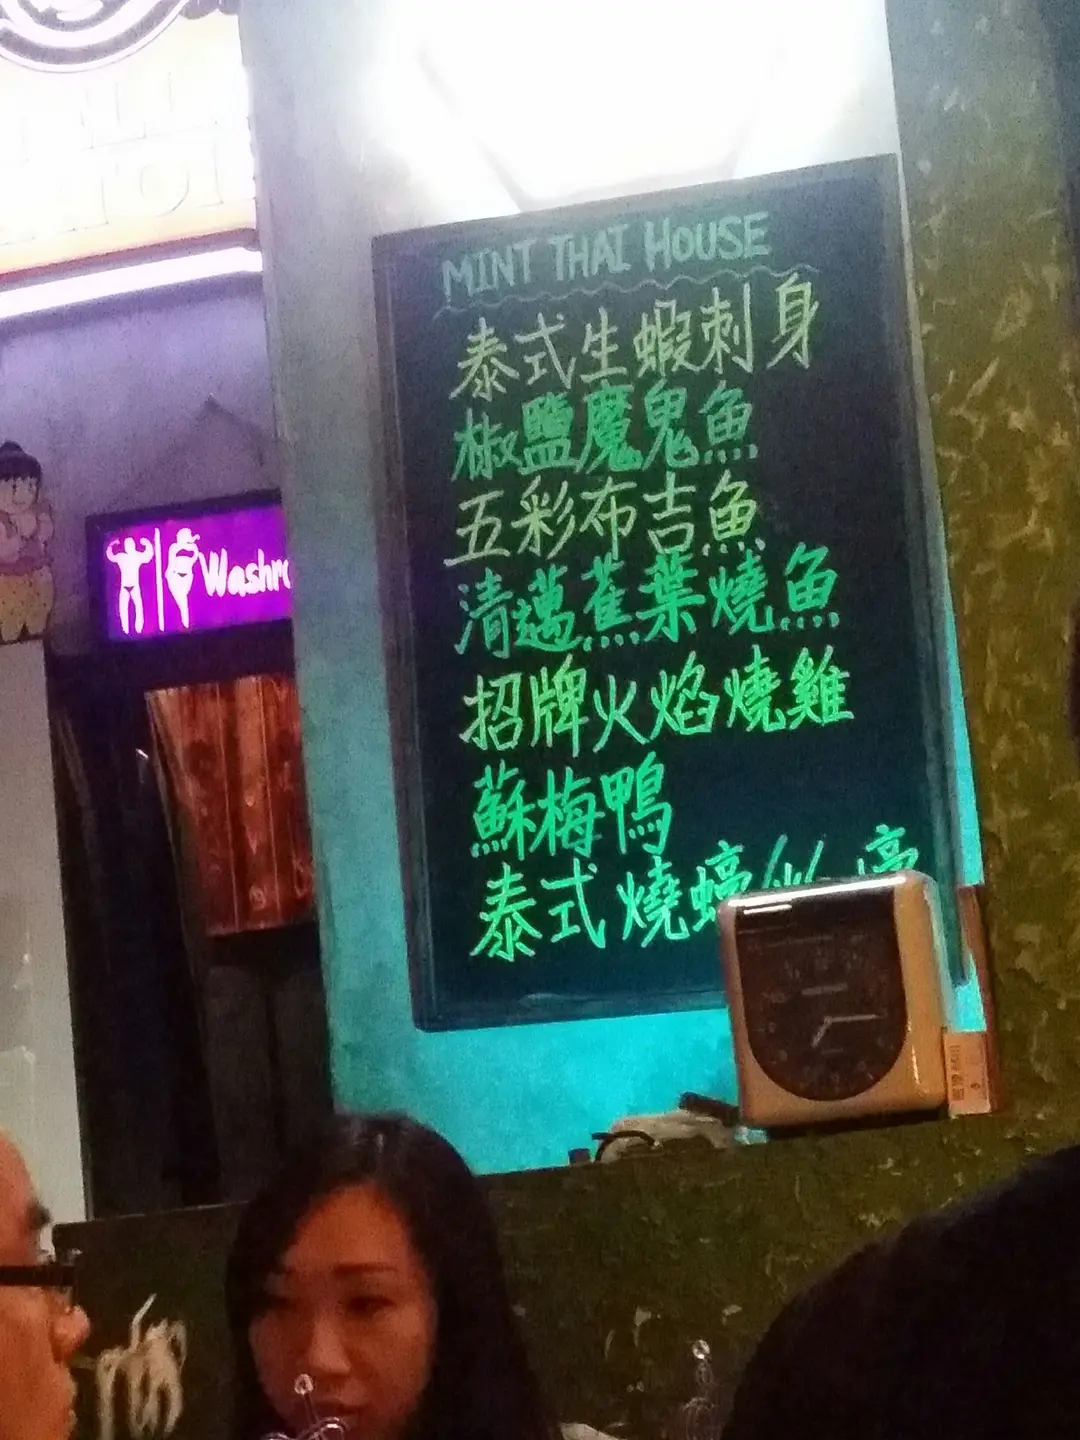 MINT THAI HOUSE
泰式生蝦刺身
椒鹽魔鬼魚
五彩布吉魚
清邁蕉葉燒魚
招牌火焰燒雞
蘇梅鴨
泰式燒蠔
Washro